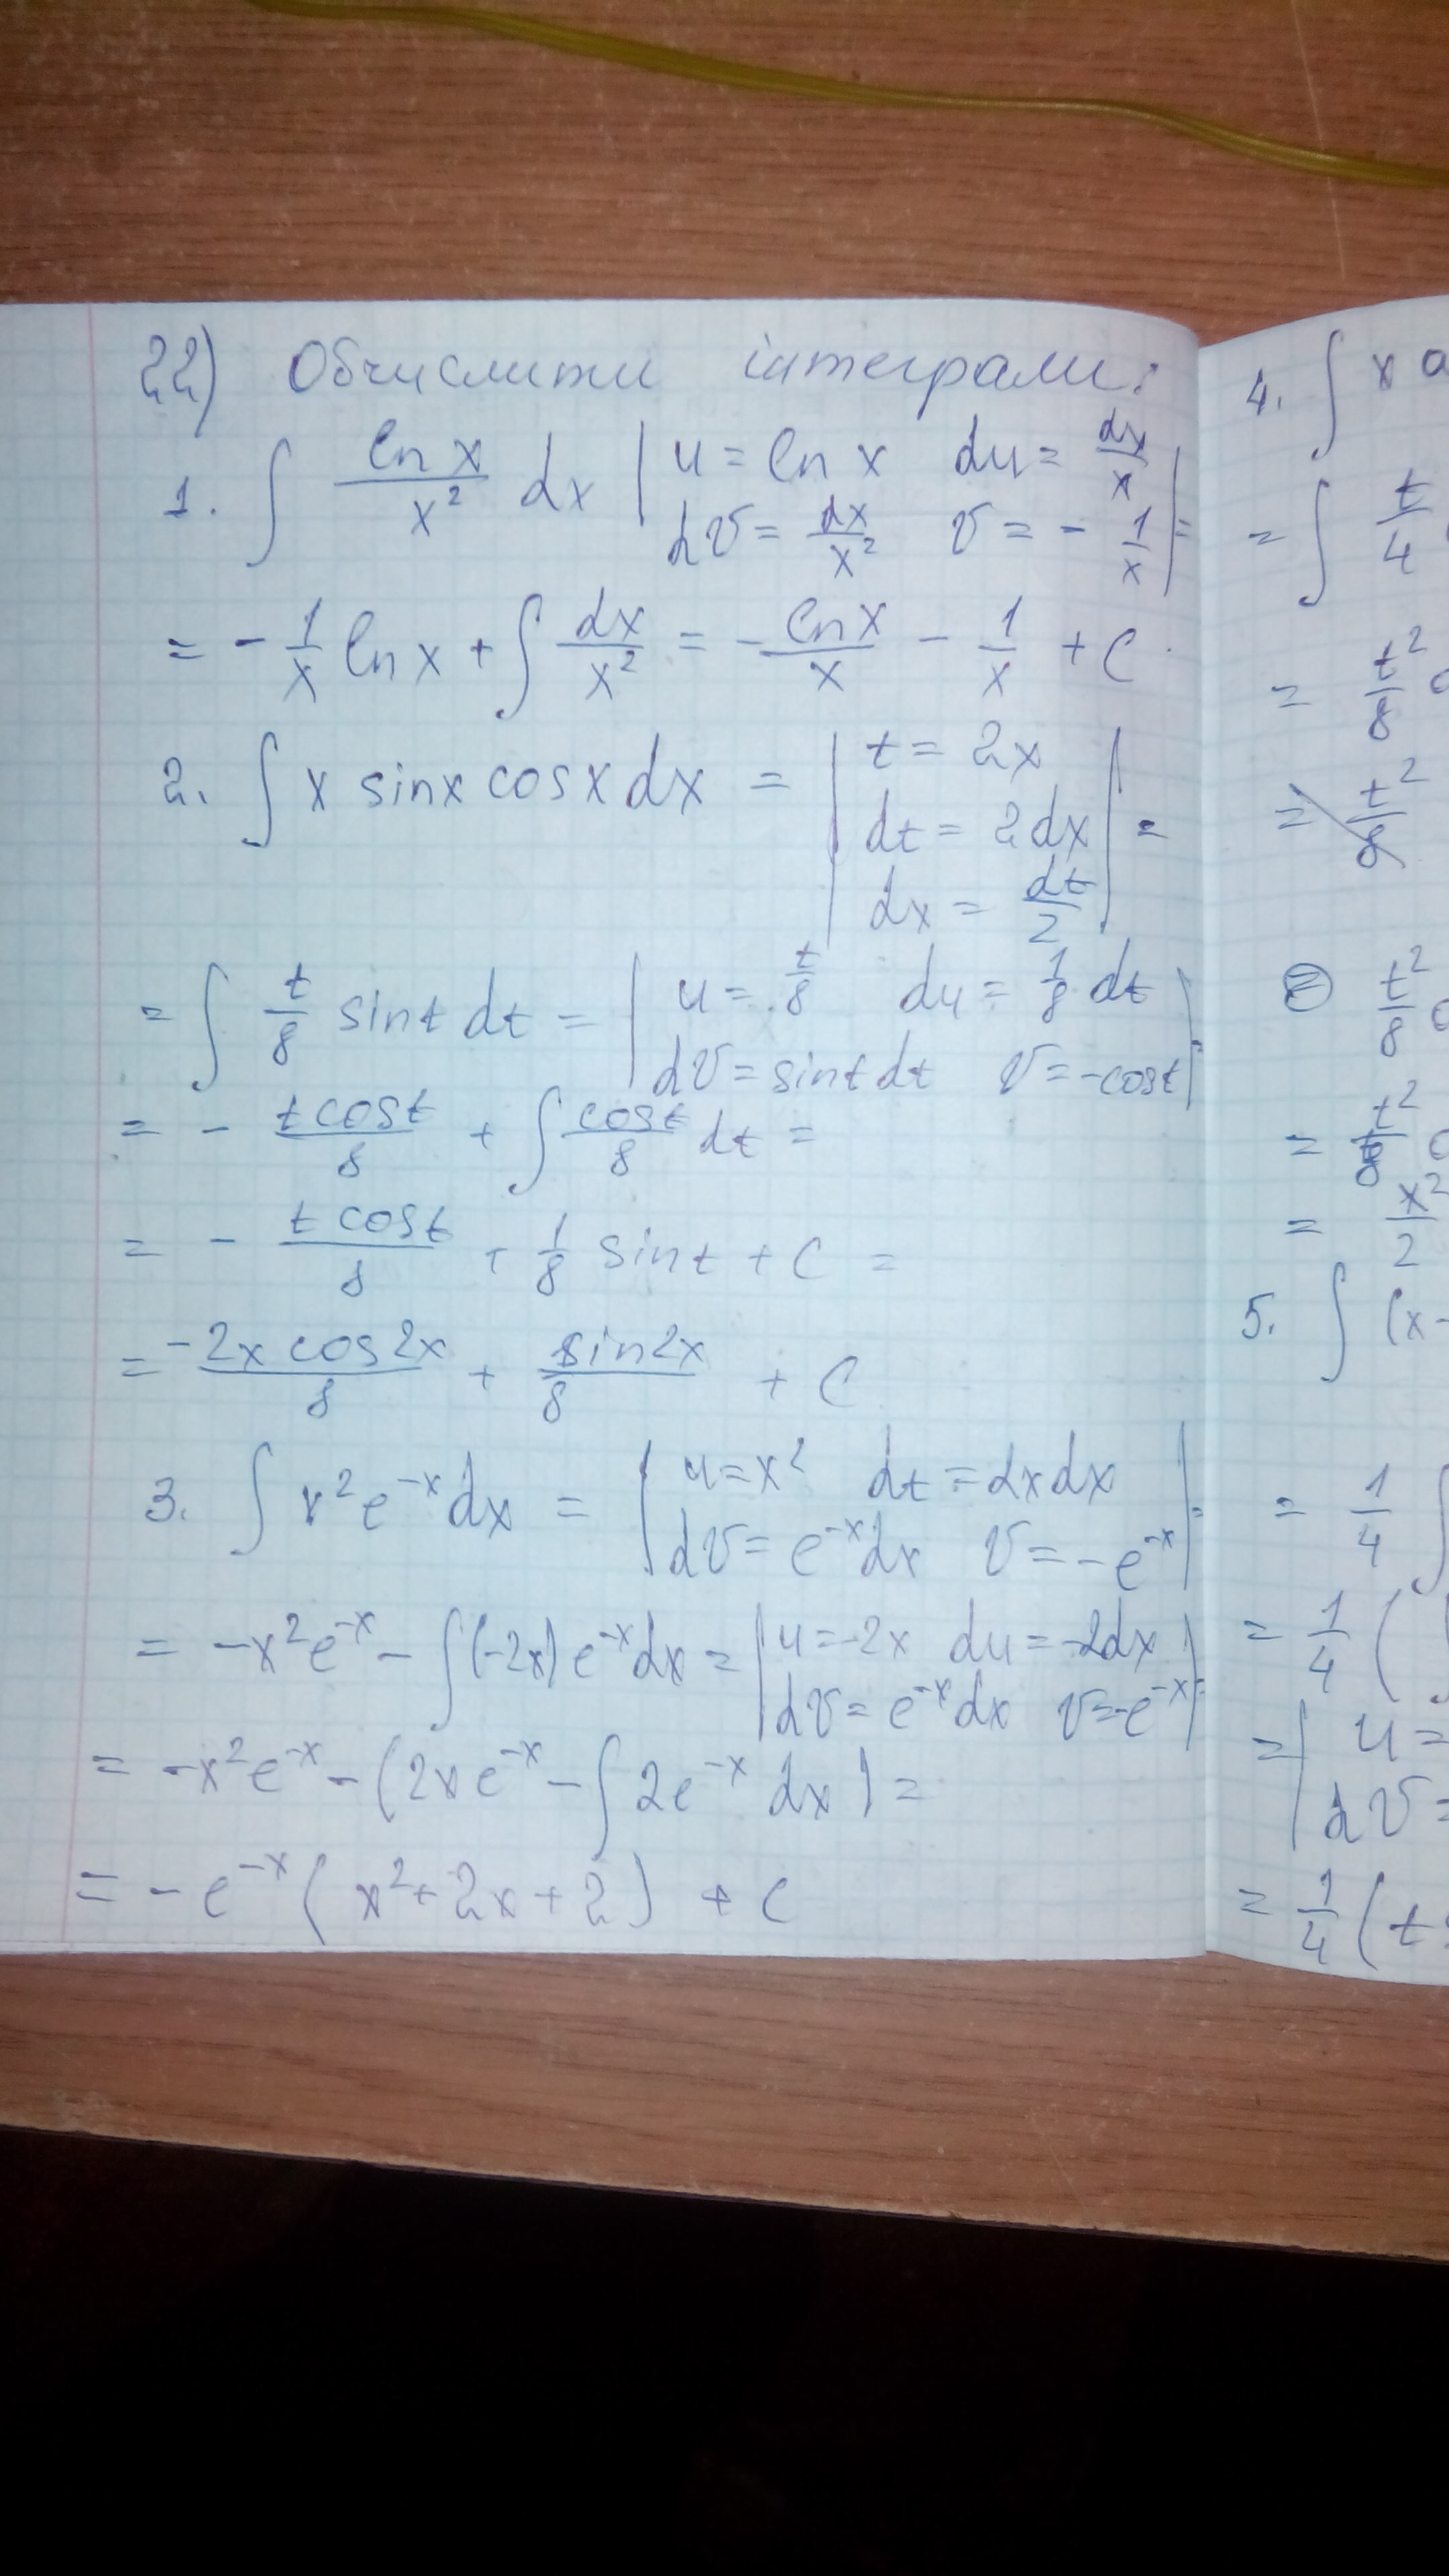 22) Обчислити інтеграли:
1. ∫ ln x / x² dx | u = ln x du = dx/x
dV = dx/x² V = - 1/x | =
= - 1/x ln x + ∫ dx/x² = - ln x / x - 1/x + C.
2. ∫ x sin x cos x dx = | t = 2x
dt = 2dx | =
dx = dt/2
= ∫ t/8 sin t dt = | u = t/8 du = 1/8 dt
dV = sin t dt V = -cos t | =
= - t cos t / 8 + ∫ cos t / 8 dt =
= - t cos t / 8 + 1/8 sin t + C =
= -2x cos 2x / 8 + sin 2x / 8 + C
3. ∫ x² e^-x dx = | u = x² dt = 2x dx
dV = e^-x dx V = - e^-x | =
= -x² e^-x - ∫ (-2x) e^-x dx = | u = -2x du = -2dx
dV = e^-x dx V = -e^-x | =
= -x² e^-x - (2x e^-x - ∫ 2e^-x dx) =
= - e^-x ( x² + 2x + 2 ) + C
4. ∫ x a
= ∫ t/4
= t²/8
= t²/8
= t²/8
= t²/8
= x²/2
5. ∫ (x -
= 1/4 ∫
= 1/4 (
= | u =
dV =
= 1/4 ( t